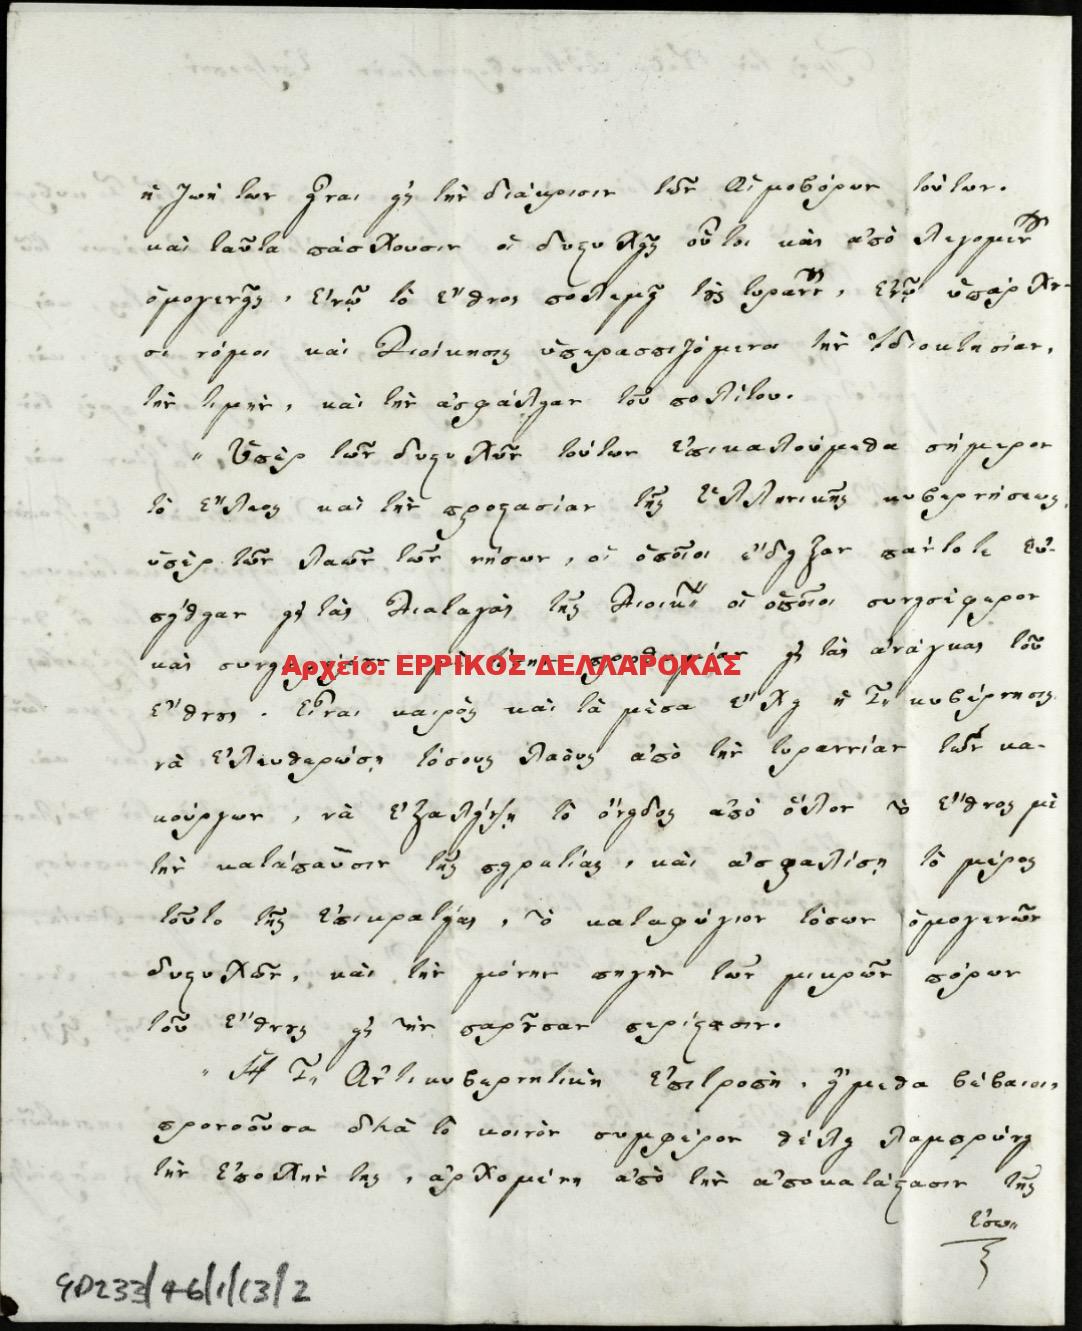 ἡ ζωή των εἶναι εἰς τὴν διάκρισιν τῶν αἱμοβόρων τούτων.
καὶ ταῦτα πάσχουσιν οἱ δυςυχεῖς οὗτοι καὶ ἀπὸ λεγομέν
ὁμογενεῖς, ἐνῷ τὸ ἔθνος πολεμεῖ τὴς τυράνν, ἐνῷ ὑπάρχου-
σι νόμοι καὶ Διοίκησις ὑπερασπιζόμενοι τὴν ἰδιοκτησίαν,
τὴν τιμὴν, καὶ τὴν ἀσφάλειαν τοῦ πολίτου.
„ Ὑπὲρ τῶν δυςυχῶν τούτων ἐπικαλούμεθα σήμερον
τὸ ἔλεος καὶ τὴν προςασίαν τῆς Ἑλληνικῆς κυβερνήσεως,
ὑπὲρ τῶν λαῶν τῶν νήσων, οἱ ὁποῖοι ἔδειξαν πάντοτε εὐ-
πείθειαν εἰς τὰς Διαταγὰς τῆς Διοικ οἱ ὁποῖοι συνεισέφερον
καὶ προθυμίαν εἰς τὰς ἀνάγκας τοῦ
Αρχείο: ΕΡΡΙΚΟΣ ΔΕΛΛΑΡΟΚΑΣ
ἔθνους. Εἶναι καιρὸς καὶ τὰ μέσα ἔχει ἡ Σ. κυβέρνησις
νὰ ἐλευθερώσῃ τόσους λαοὺς ἀπὸ τὴν τυραννίαν τῶν κα-
κούργων, νὰ ἐξαλείψῃ τὸ ὄνειδος ἀπὸ ὅλον τὸ ἔθνος μὲ
τὴν κατάπαυσιν τῆς πειρατίας, καὶ ἀσφαλίσῃ τὸ μέρος
τοῦτο τῆς ἐπικρατείας, τὸ καταφύγιον τόσων ὁμογενῶν
δυςυχῶν, καὶ τὴν μόνην πηγὴν τῶν μικρῶν πόρων
τοῦ ἔθνους εἰς τὴν παροῦσαν περίςασιν.
„ Ἡ Σ. Ἀντικυβερνητικὴ Ἐπιτροπὴ, εἴμεθα βέβαιοι,
προνοοῦσα διὰ τὸ κοινὸν συμφέρον θέλει λαμπρύνει
τὴν ἐποχήν της, ἀρχομένη ἀπὸ τὴν ἀποκατάςασιν τῆς
ἐσω„
GD233/46/1/13/2